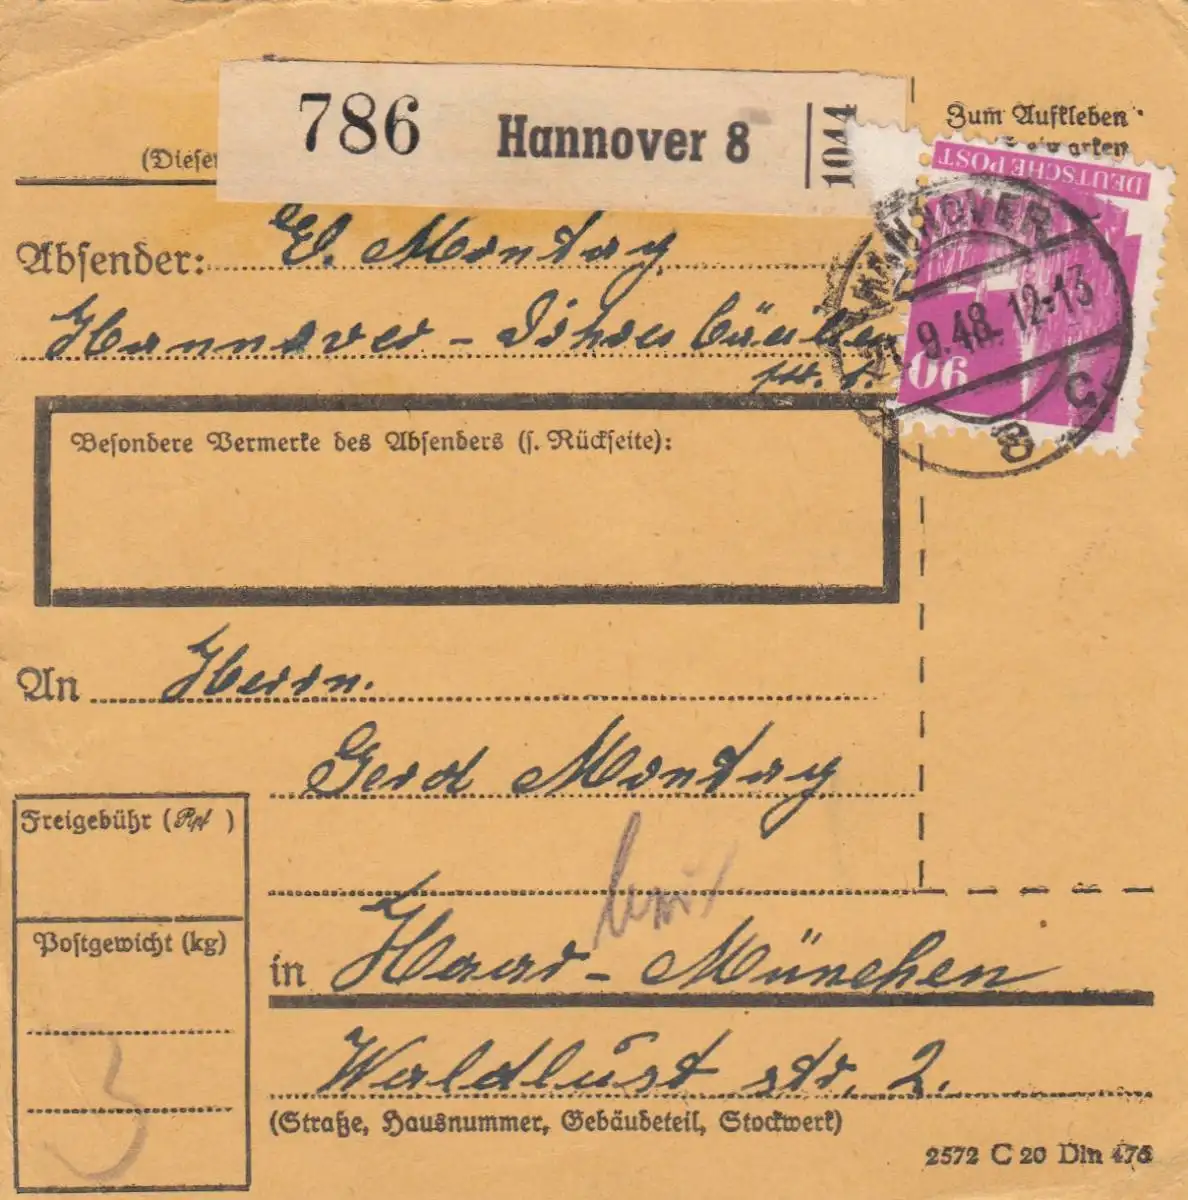 786 Hannover 8
1044
Zum Aufkleben
(Diese
DEUTSCHE POST
Absender: E. Montag
HANNOVER
9.48. 12-13
90
c
8
Hannover -
Besondere Vermerke des Absenders (s. Rückseite):
An Herrn.
Gerd Montag
Freigebühr (Rpf )
Postgewicht (kg)
3
in Haar - München
Waldlust str. 2.
(Straße, Hausnummer, Gebäudeteil, Stockwerk)
2572 C 20 Din 476